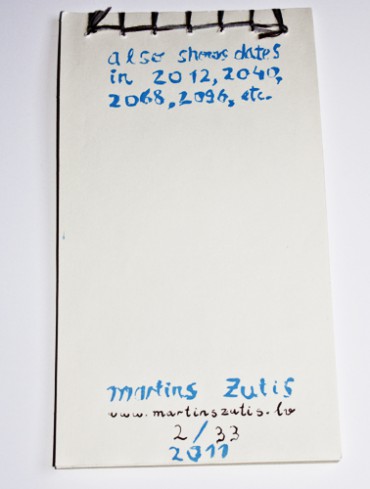 also shows dates
in 2012, 2040,
2068, 2096, etc.
martins zutis
www.martinszutis.lv
2/33
2011